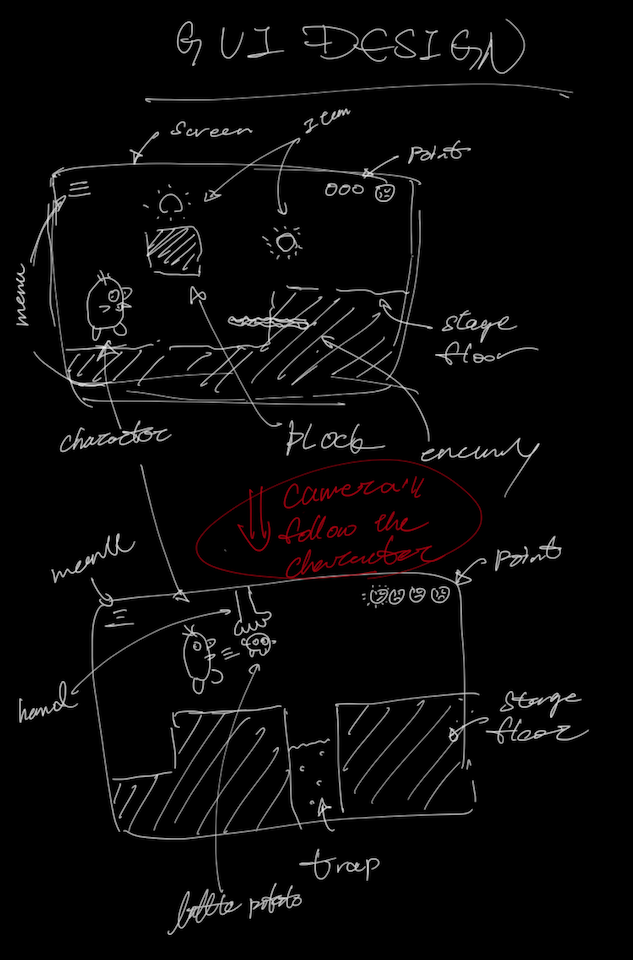 GUI DESIGN
screen
Item
point
menu
stage
floor
character
block
camera'll
follow the
character
menu
point
hand
stage
floor
trap
potato